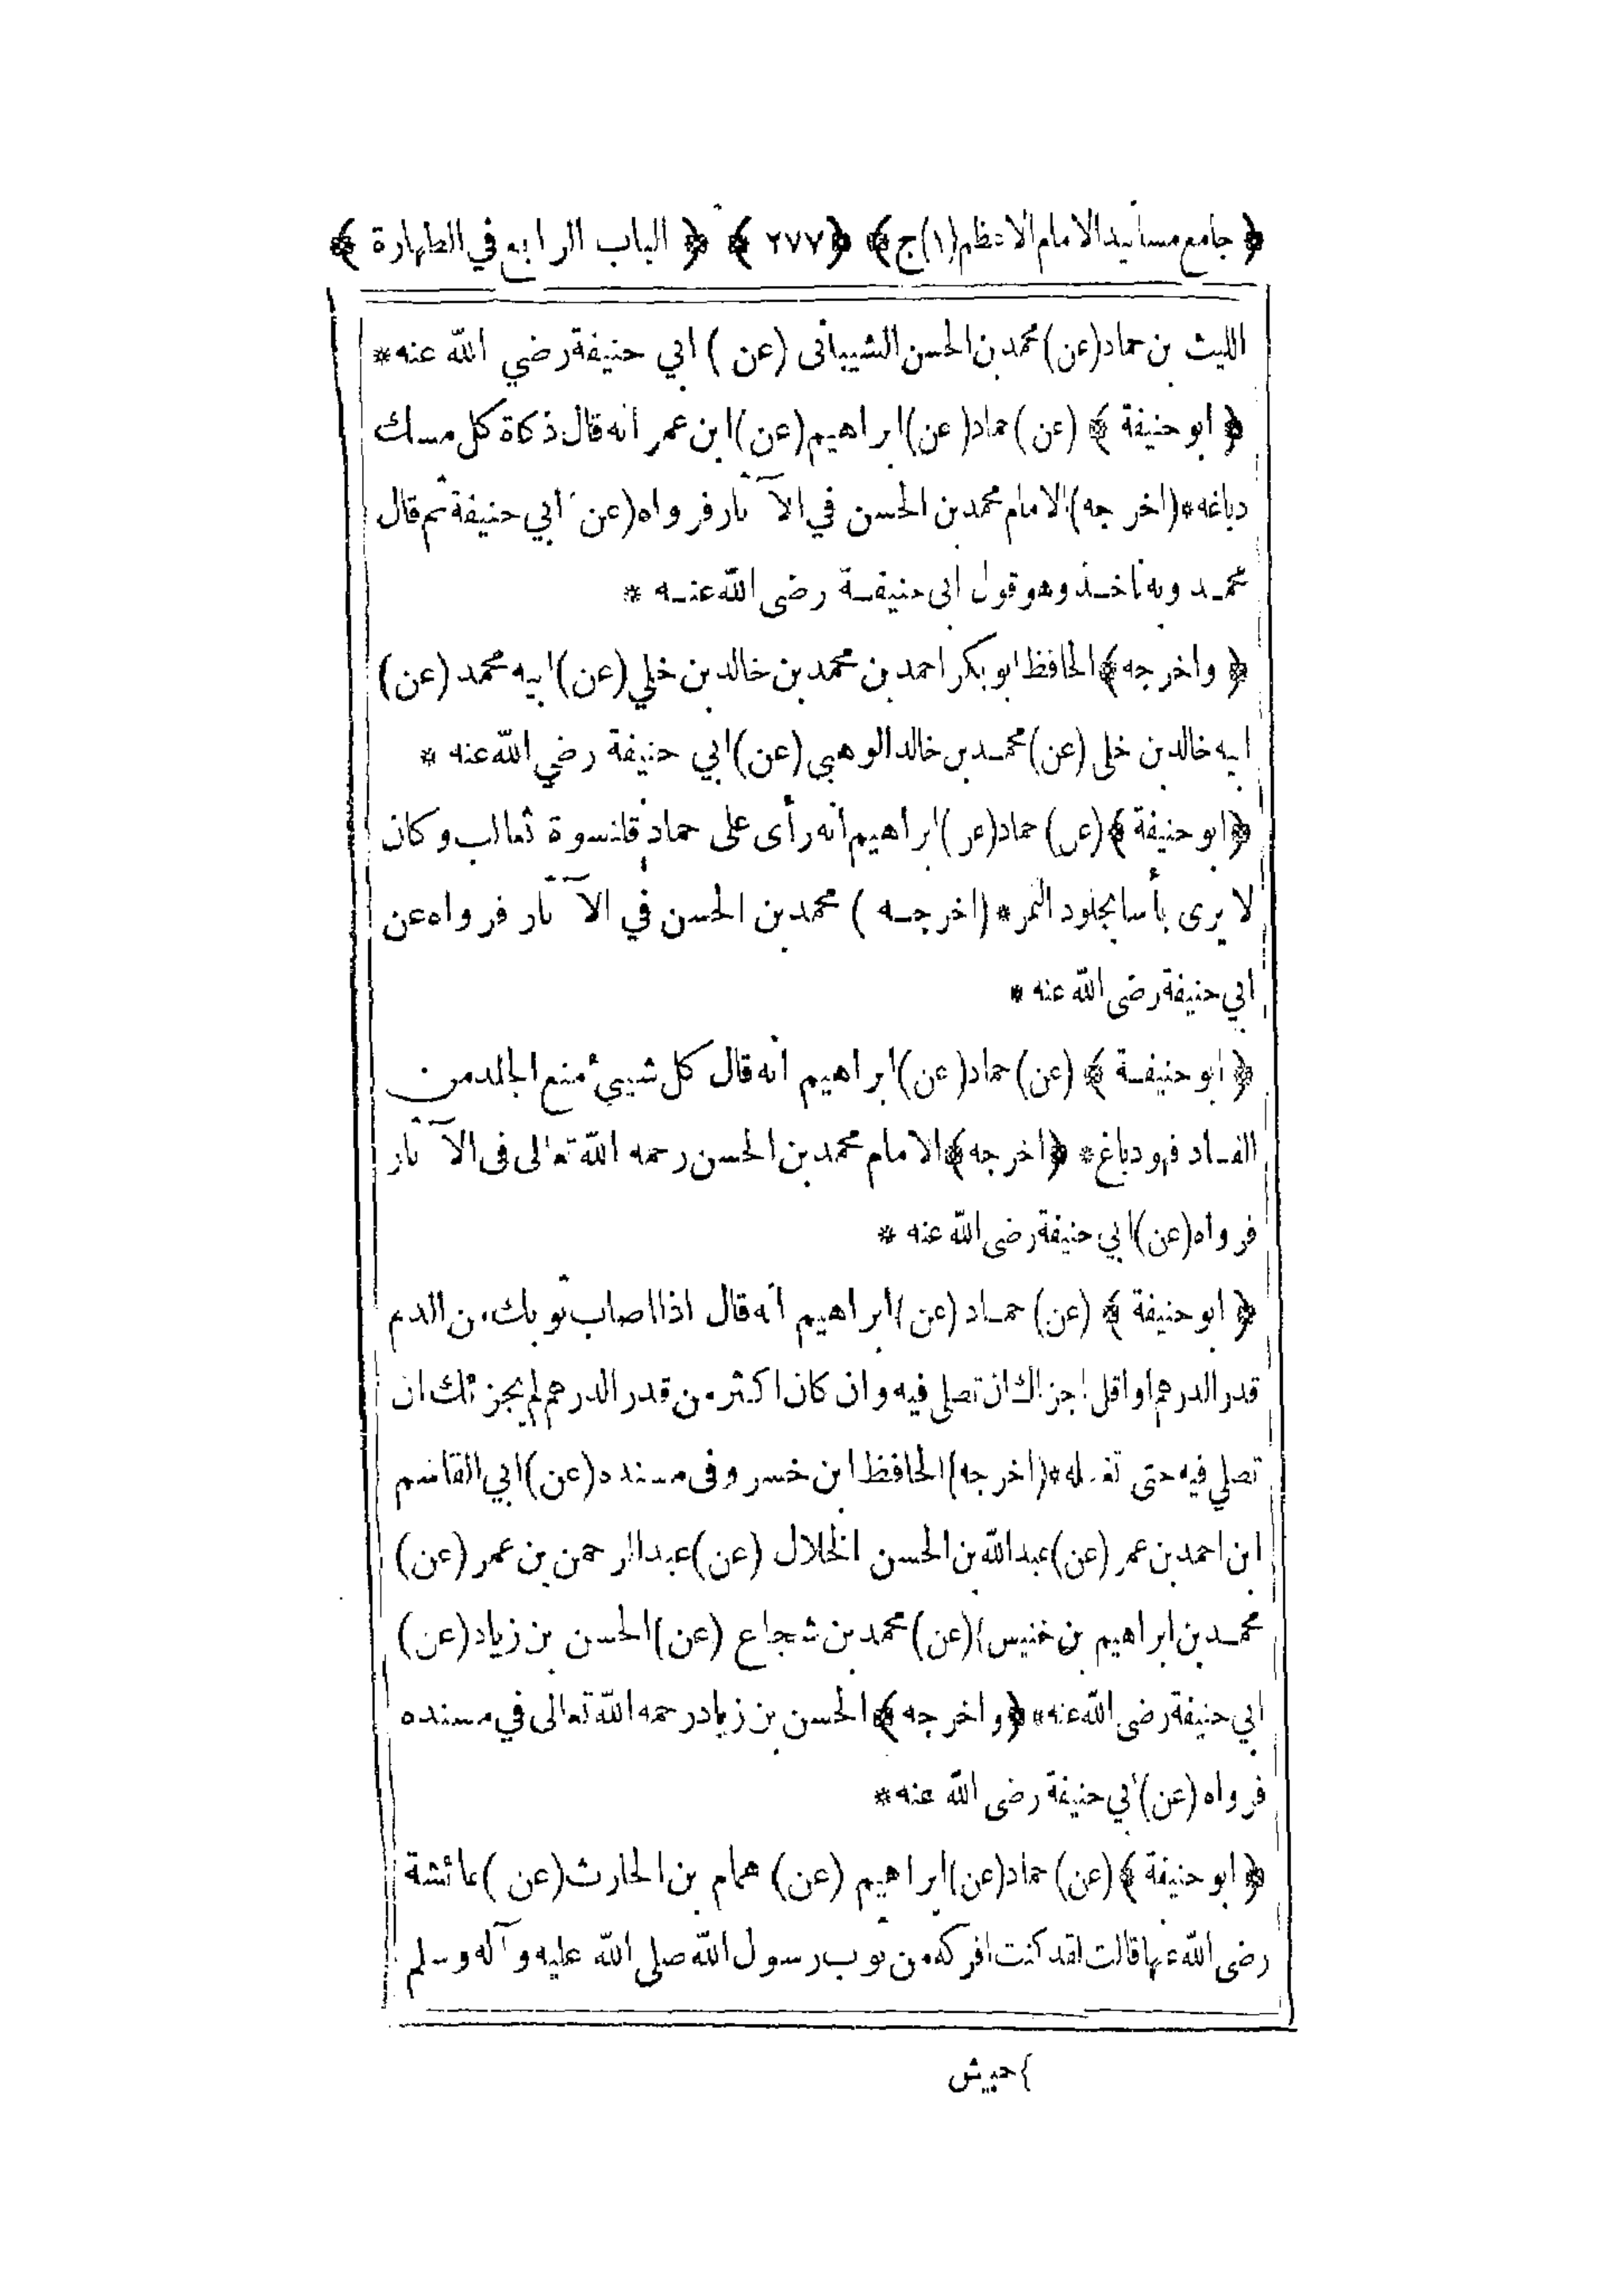 ﴿ جامع مسانيد الامام الاعظم (١) ج ﴾ ﴿ ٢٧٧ ﴾ ﴿ الباب الرابع في الطهارة ﴾
الليث بن حماد (عن) محمد بن الحسن الشيباني (عن) ابي حنيفة رضي الله عنه *
﴿ ابو حنيفة ﴾ (عن) حماد (عن) ابراهيم (عن) ابن عمر انه قال ذكاة كل مسك
دباغه * (اخرجه) الامام محمد بن الحسن في الآثار فرواه (عن) ابي حنيفة ثم قال
محمد وبه ناخذ وهو قول ابى حنيفة رضى الله عنه *
﴿ واخرجه ﴾ الحافظ ابو بكر احمد بن محمد بن خالد بن خلي (عن) ابيه محمد (عن)
ابيه خالد بن خلى (عن) محمد بن خالد الوهبى (عن) ابي حنيفة رضي الله عنه *
﴿ ابو حنيفة ﴾ (عن) حماد (عن) ابراهيم انه رأى على حماد قلنسوة ثعالب وكان
لا يرى بأسا بجلود النمر * (اخرجه) محمد بن الحسن في الآثار فرواه عن
ابي حنيفة رضى الله عنه *
﴿ ابو حنيفة ﴾ (عن) حماد (عن) ابراهيم انه قال كل شيئ منع الجلد من
الفساد فهو دباغ * ﴿ اخرجه ﴾ الامام محمد بن الحسن رحمه الله تعالى فى الآثار
فرواه (عن) ابي حنيفة رضى الله عنه *
﴿ ابو حنيفة ﴾ (عن) حماد (عن) ابراهيم انه قال اذا اصاب ثوبك من الدم
قدر الدرهم او اقل اجزاك ان تصلي فيه وان كان اكثر من قدر الدرهم لم يجزئك ان
تصلي فيه حتى تغسله * (اخرجه) الحافظ ابن خسرو فى مسنده (عن) ابي القاسم
ابن احمد بن عمر (عن) عبد الله بن الحسن الخلال (عن) عبد الرحمن بن عمر (عن)
محمد بن ابراهيم بن خنيس } (عن) محمد بن شجاع (عن) الحسن بن زياد (عن)
ابي حنيفة رضى الله عنه * ﴿ واخرجه ﴾ الحسن بن زياد رحمه الله تعالى في مسنده
فرواه (عن) ابي حنيفة رضى الله عنه *
﴿ ابو حنيفة ﴾ (عن) حماد (عن) ابراهيم (عن) همام بن الحارث (عن) عائشة
رضى الله عنها قالت لقد كنت افركه من ثوب رسول الله صلى الله عليه وآله وسلم
} حبيش